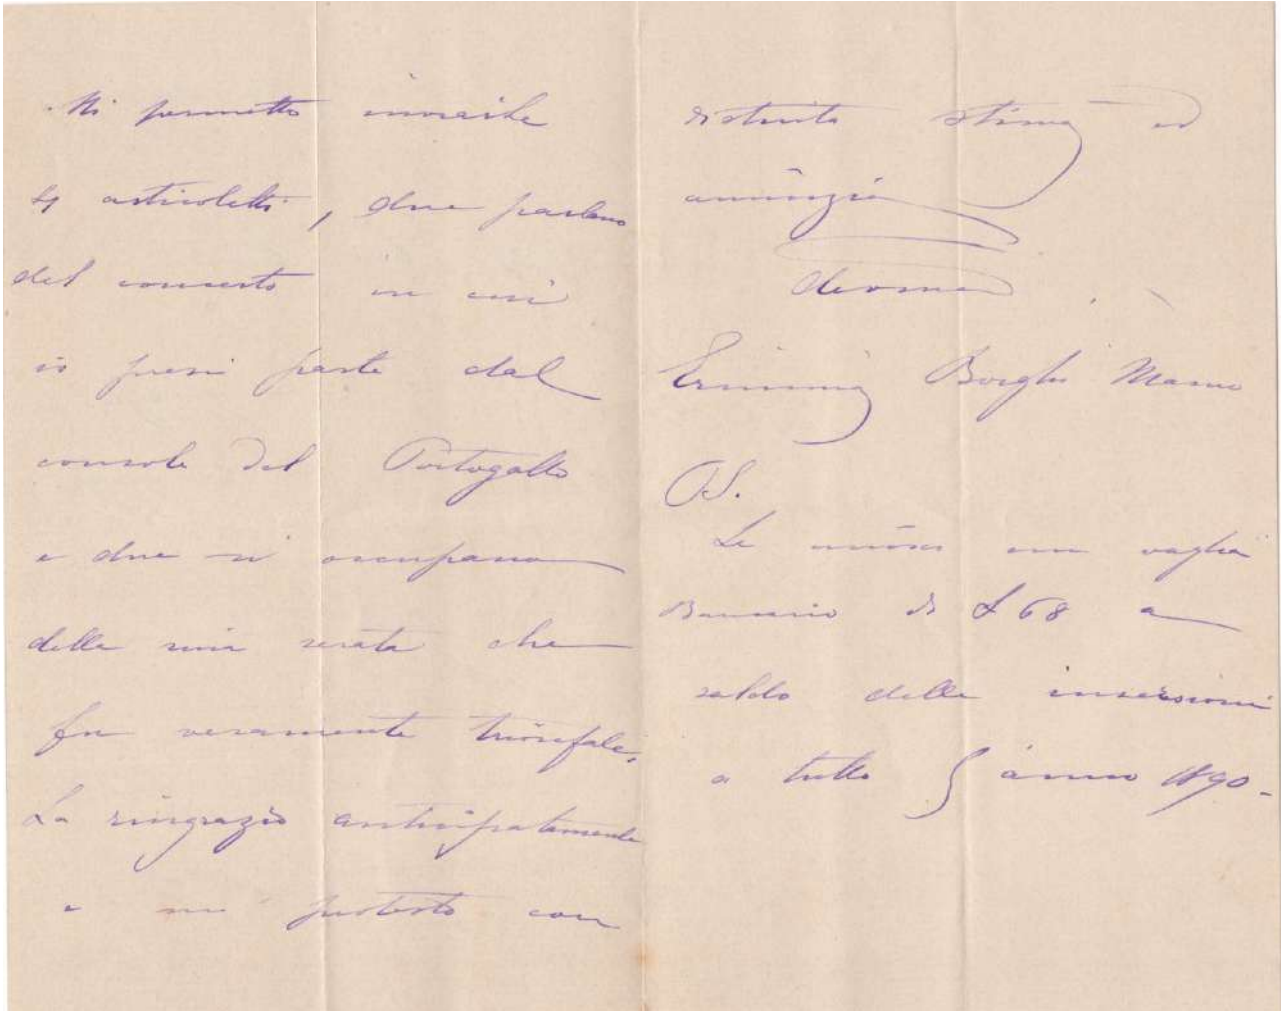 Mi permetto inviarle
4 articoletti, due parlano
del concerto in cui
io presi parte dal
console del Portogallo
e due si occupano
della mia serata che
fu veramente trionfale.
La ringrazio anticipatamente
e mi protesto con
distinta stima ed
amicizia
devoma
Erminia Borghi Mamo
PS.
Le unisco un vaglia
Bancario di £ 68 a
saldo delle inserzioni
a tutto l'anno 1890-